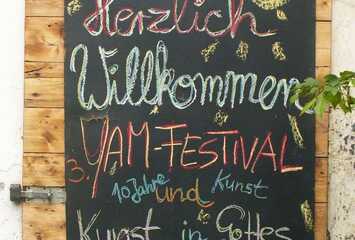 Herzlich
Willkommen
3. YAM-FESTIVAL
10 Jahre und Kunst
Kunst in Gottes